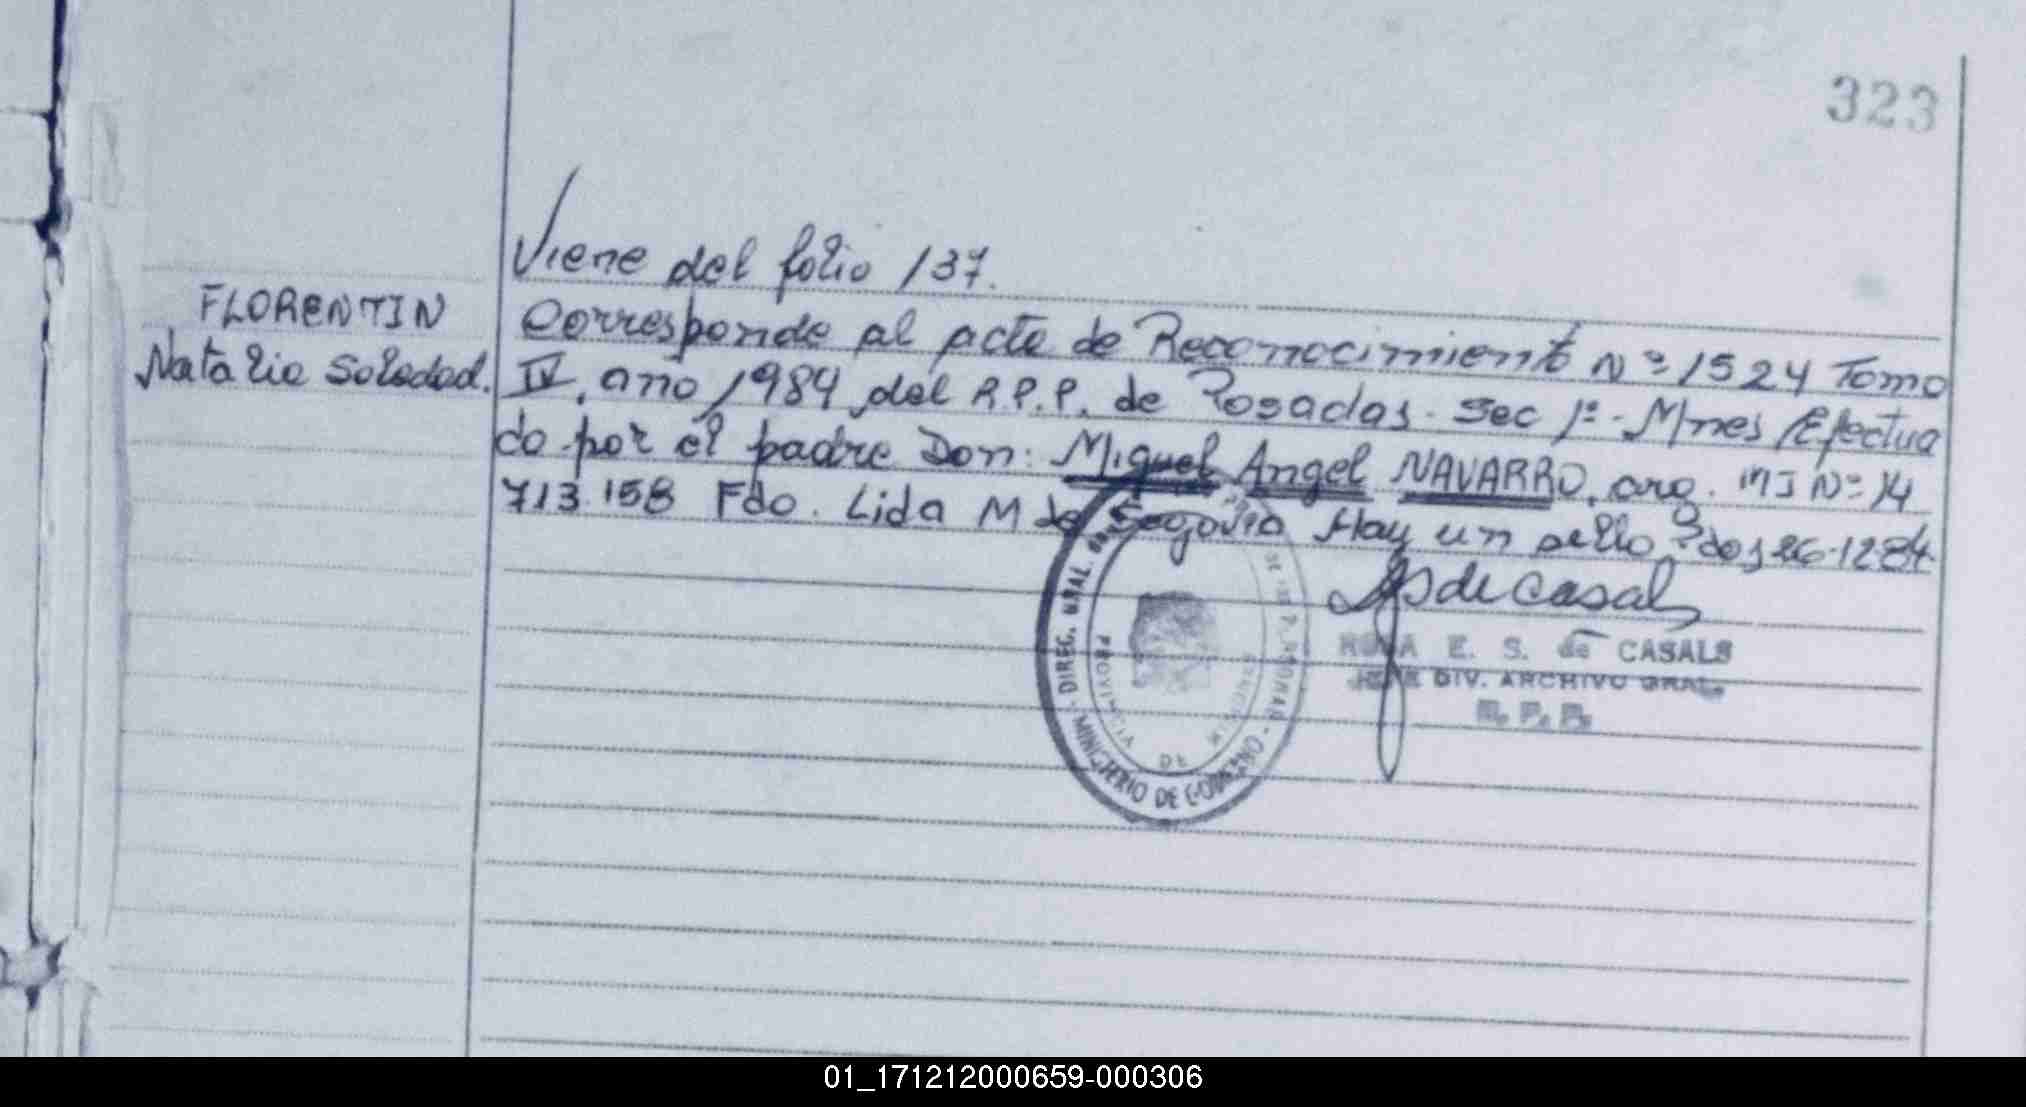 323
Viene del folio 137.
FLORENTIN
Natalia Soledad.
Corresponde al acta de Reconocimiento Nº 1524 Tomo
IV, año 1984, del R.P.P. de Posadas. Sec 1º - Mnes Efectua
do por el padre Don: Miguel Angel NAVARRO, arg. MI Nº 14
713.158 Fdo. Lida M de Segovia Hay un sello Pdas 26-12-84.
de Casals
ROSA E. S. de CASALS
JEFE DIV. ARCHIVO GRAL.
R. P. P.
DIREC. GRAL. DE LAS PERSONAS - MINISTERIO DE GOBIERNO
PROVINCIA DE
01_171212000659-000306